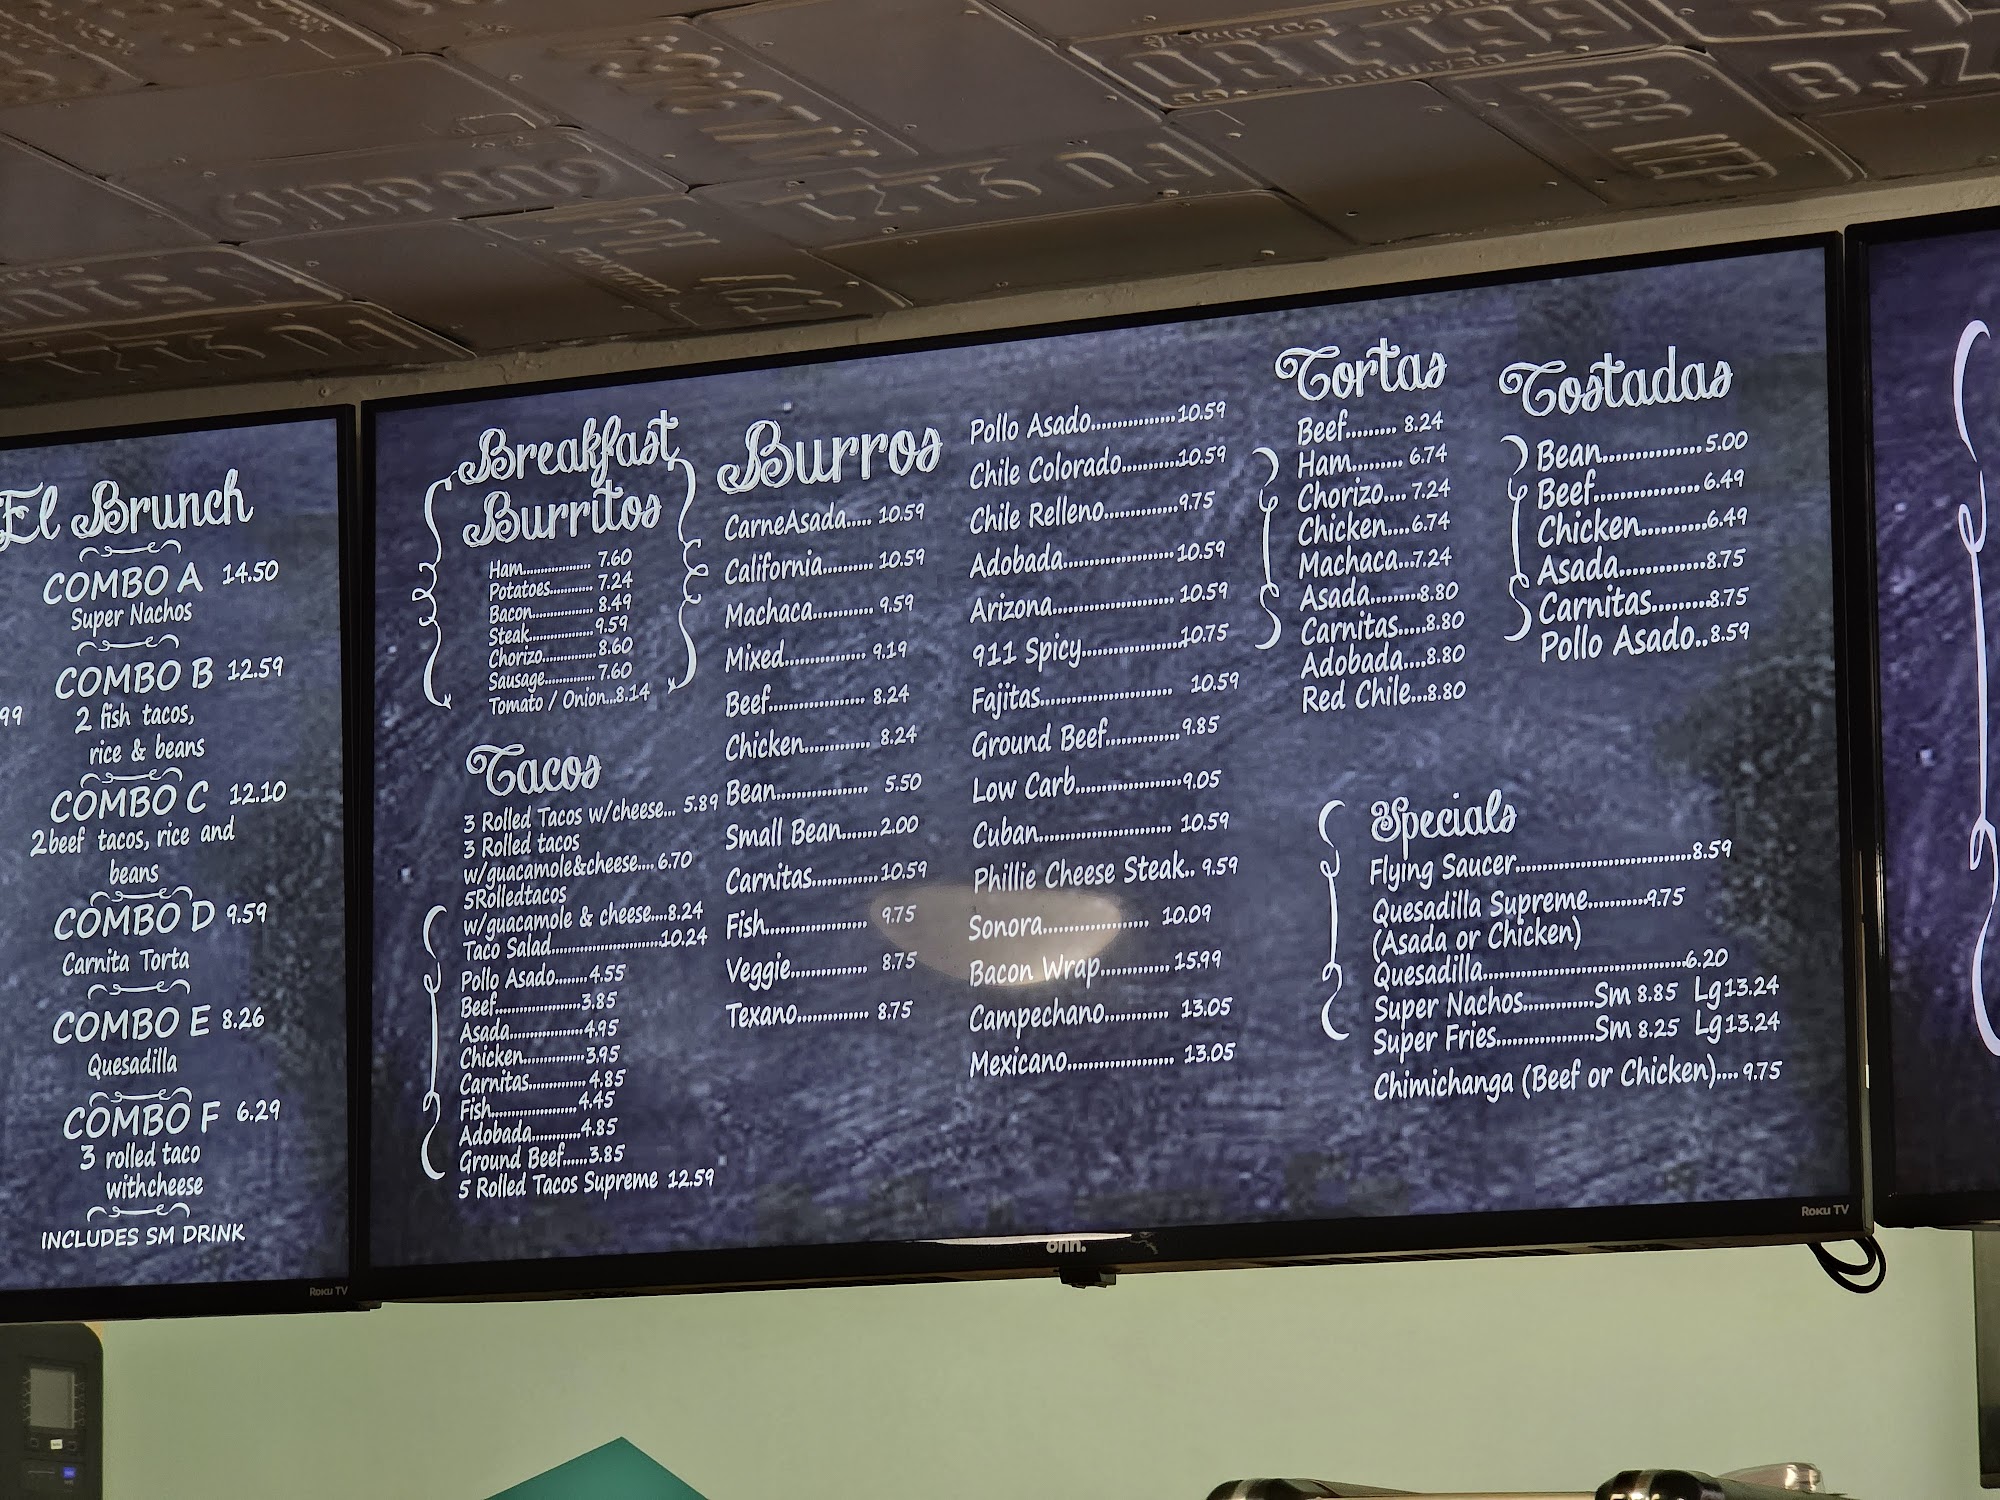 El Brunch
COMBO A 14.50
Super Nachos
COMBO B 12.59
2 fish tacos,
rice & beans
99
COMBO C 12.10
2beef tacos, rice and
beans
COMBO D 9.59
Carnita Torta
COMBO E 8.26
Quesadilla
COMBO F 6.29
3 rolled taco
withcheese
INCLUDES SM DRINK
Roku TV
Breakfast
Burritos
Ham................... 7.60
Potatoes............ 7.24
Bacon................. 8.49
Steak.................. 9.59
Chorizo...............8.60
Sausage.............. 7.60
Tomato / Onion...8.14
Tacos
3 Rolled Tacos w/cheese... 5.89
3 Rolled tacos
w/guacamole&cheese.... 6.70
5Rolledtacos
w/guacamole & cheese....8.24
Taco Salad..........................10.24
Pollo Asado........4.55
Beef.....................3.85
Asada..................4.95
Chicken...............3.95
Carnitas.............. 4.85
Fish.....................4.45
Adobada............4.85
Ground Beef......3.85
5 Rolled Tacos Supreme 12.59
Burros
CarneAsada..... 10.59
California.......... 10.59
Machaca............ 9.59
Mixed................ 9.19
Beef................... 8.24
Chicken............. 8.24
Bean.................. 5.50
Small Bean.......2.00
Carnitas.............10.59
Fish.................... 9.75
Veggie............... 8.75
Texano.............. 8.75
Pollo Asado................10.59
Chile Colorado...........10.59
Chile Relleno..............9.75
Adobada..................... 10.59
Arizona....................... 10.59
911 Spicy...................10.75
Fajitas......................... 10.59
Ground Beef..............9.85
Low Carb....................9.05
Cuban......................... 10.59
Phillie Cheese Steak.. 9.59
Sonora.................... 10.09
Bacon Wrap............. 15.99
Campechano............ 13.05
Mexicano.................... 13.05
Tortas
Beef......... 8.24
Ham......... 6.74
Chorizo.... 7.24
Chicken....6.74
Machaca...7.24
Asada.........8.80
Carnitas.....8.80
Adobada....8.80
Red Chile...8.80
Tostadas
Bean.................5.00
Beef..................6.49
Chicken...........6.49
Asada..............8.75
Carnitas..........8.75
Pollo Asado..8.59
Specials
Flying Saucer................................8.59
Quesadilla Supreme...........9.75
(Asada or Chicken)
Quesadilla.....................................6.20
Super Nachos.............Sm 8.85 Lg13.24
Super Fries..................Sm 8.25 Lg13.24
Chimichanga (Beef or Chicken).... 9.75
onn.
Roku TV